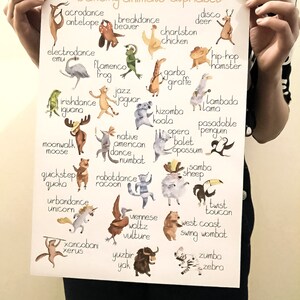 acrodance
antelope
breakdance
beaver
disco
charleston
chicken
electrodance
emu
flamenco
frog
garba
giraffe
hip-hop
hamster
irishdance
iguana
jazz
jaguar
kizomba
koala
lambada
lama
moonwalk
moose
native
american
dance
numbat
opera
ballet
opossum
pasodoble
penguin
quickstep
quoka
robotdance
racoon
samba
sheep
twist
toucan
urbandance
unicorn
viennese
waltz
vulture
west coast
swing wombat
xancobani
xerus
yuebr
yak
zumba
zebra